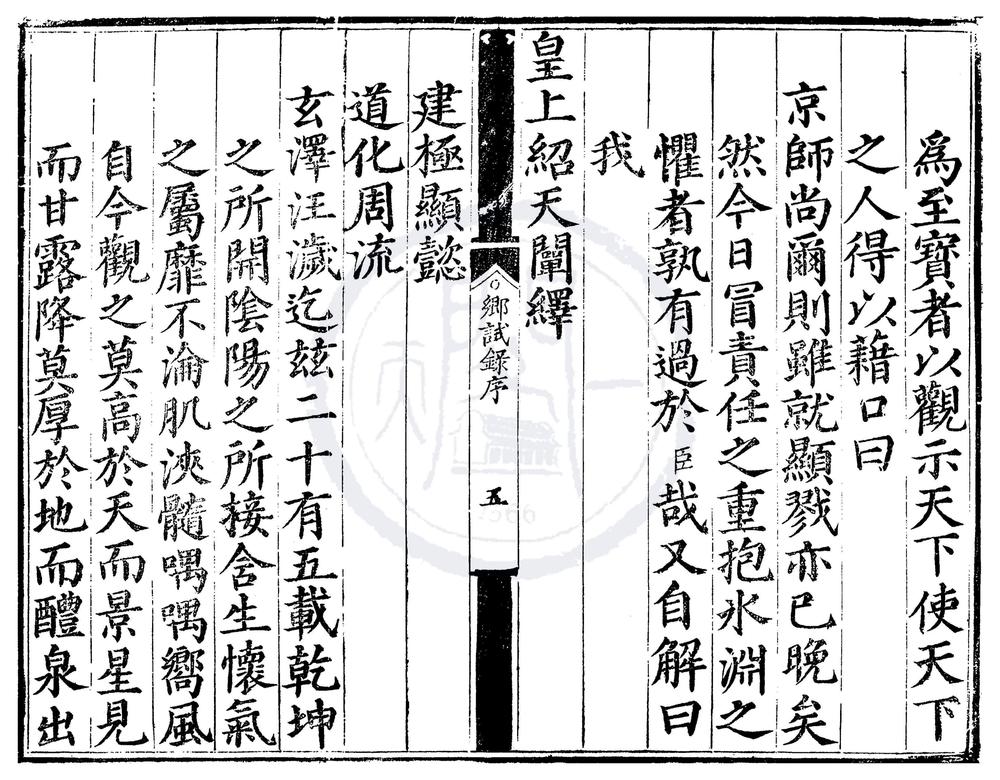 爲至寶者以觀示天下使天下
之人得以藉口曰
京師尚爾則雖就顯戮亦已晚矣
然今日冒責任之重抱氷淵之
懼者孰有過於臣哉又自解曰
我
皇上紹天闡繹
鄉試錄序
五
建極顯懿
道化周流
玄澤汪濊迄玆二十有五載乾坤
之所開陰陽之所接含生懷氣
之屬靡不淪肌浹髓喁喁嚮風
自今觀之莫高於天而景星見
而甘露降莫厚於地而醴泉出